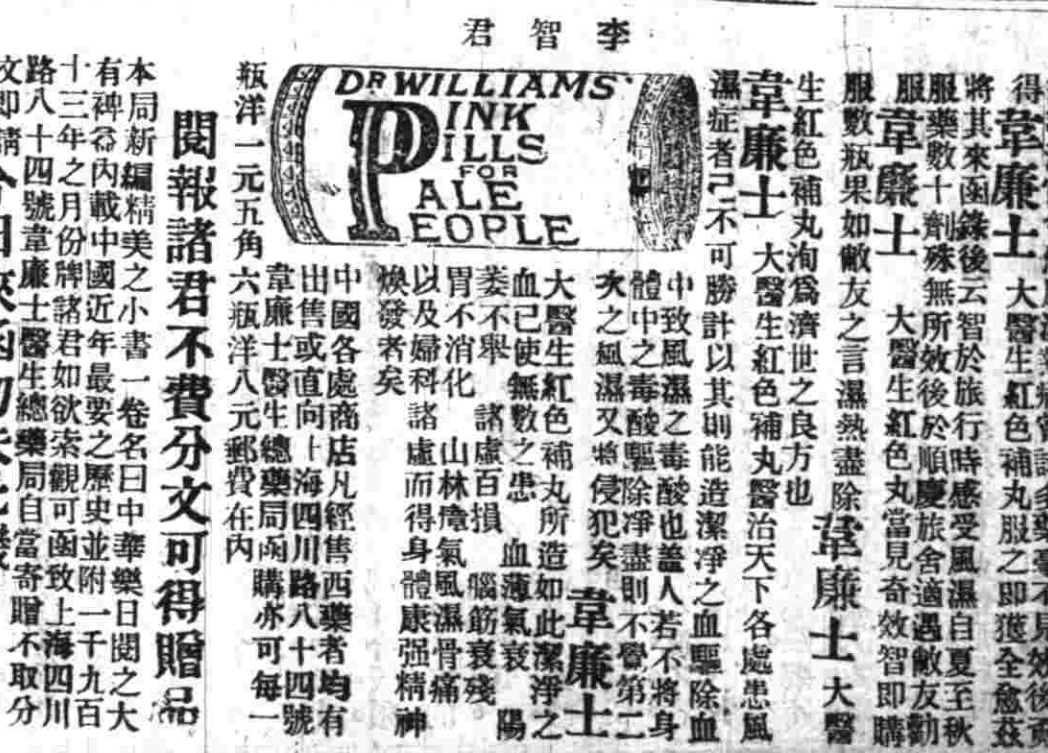 李智君
得韋廉士大醫生紅色補丸服之即獲全愈茲
將其來函錄後云智於旅行時感受風濕自夏至秋
服藥數十劑殊無所效後於順慶旅舍適遇敝友勸
服韋廉士大醫生紅色丸當見奇效智即購
服數瓶果如敝友之言濕熱盡除韋廉士大醫
生紅色補丸洵爲濟世之良方也
韋廉士大醫生紅色補丸醫治天下各處患風
濕症者已不可勝計以其則能造潔淨之血驅除血
DR WILLIAMS'
PINK
PILLS
FOR
PALE
PEOPLE
中致風濕之毒酸也蓋人若不將身
體中之毒酸驅除淨盡則不覺第二
次之風濕又將侵犯矣韋廉士
大醫生紅色補丸所造如此潔淨之
血已使無數之患血薄氣衰陽
萎不舉諸虛百損腦筋衰殘
胃不消化山林瘴氣風濕骨痛
以及婦科諸虛而得身體康强精神
煥發者矣
中國各處商店凡經售西藥者均有
出售或直向上海四川路八十四號
韋廉士醫生總藥局函購亦可每一
瓶洋一元五角六瓶洋八元郵費在內
閱報諸君不費分文可得贈品
本局新編精美之小書一卷名曰中華藥日閱之大
有裨益內載中國近年最要之歷史並附一千九百
十三年之月份牌諸君如欲索觀可函致上海四川
路八十四號韋廉士醫生總藥局自當寄贈不取分
文即請